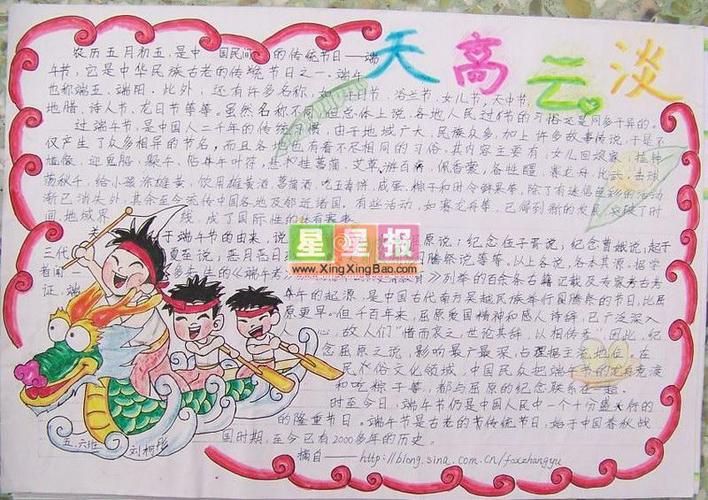 天高云淡
农历五月初五,是中国民间的传统节日——端
午节,它是中华民族古老的传统节日之一。端午
也称端五、端阳。此外,还有许多名称,如:午日节、浴兰节、女儿节、天中节、
地腊、诗人节、龙日节等等。虽然名称不同,但总体上说,各地人民过节的习俗还是同多于异的。
过端午节,是中国人二千年的传统习惯,由于地域广大,民族众多,加上许多故事传说,于是不
仅产生了众多相异的节名,而且各地也有着不尽相同的习俗。其内容主要有:女儿回娘家,挂钟
馗像,迎鬼船、躲午、帖午叶符,悬挂菖蒲、艾草,游百病,佩香囊,备牲醴,赛龙舟,比武,击球,
荡秋千,给小孩涂雄黄,饮用雄黄酒、菖蒲酒,吃五毒饼、咸蛋、粽子和时令鲜果等,除了有迷信色彩的活动
渐已消失外,其余至今流传中国各地及邻近诸国。有些活动,如赛龙舟等,已得到新的发展,突破了时
间、地域界线,成了国际性的体育赛事。
关于端午节的由来,说 原说;纪念伍子胥说;纪念曹娥说;起于
三代夏至说;恶月恶日 图腾祭说等等。以上各说,各本其源。据学
者闻一多先生的《端午考 》列举的百余条古籍记载及专家考古考
证,端午的起源,是中国古代南方吴越民族举行图腾祭的节日,比屈
原更早。但千百年来,屈原的爱国精神和感人诗辞,已广泛深入
心,故人们“惜而哀之,世论其辞,以相传焉”,因此,纪
念屈原之说,影响最广最深,占据主流地位。在
民俗文化领域,中国民众把端午节的龙舟竞渡
和吃粽子等,都与屈原的纪念联系在一起。
时至今日,端午节仍是中国人民中一个十分盛大
的隆重节日。端午节是古老的传统节日,始于中国春秋战
国时期,至今已有2000多年的历史。
摘自——http://blong.sina.com.cn/foxzhangyu
五.六班 刘柯
星星报
www.XingXingBao.com